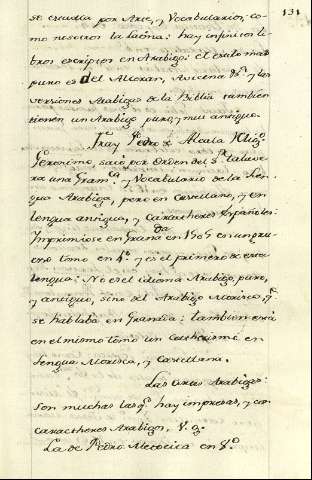 131
se estudia por Arte, y Vocabularios, co-
mo nosotros la latina: hay infinitos li-
bros escriptos en Arabigo: el estilo mas
puro es del Alcoran, Avicena &c. y las
versiones Arabigas de la Biblia tambien
tienen un Arabigo puro, y mui antiguo.
Fray Pedro de Alcala Relig.
Geronimo, sacó por orden del Sr. Talave-
ra una Gramca. y Vocabulario de la Len-
gua Arabiga, pero en Castellano, y en
lengua antigua, y Caracteres Españoles:
Imprimiose en Granada en 1505 en un grue-
so tomo en 4º y es el primero de esta
lengua: No es el idioma Arabigo puro,
y antiguo, sino del Arabigo Morisco, q.
se hablaba en Granada: tambien está
en el mismo tomo un Cathecismo en
Lengua Morisca, y Castellana.
Las Artes Arabigas:
son muchas las q. hay impresas, y con
caracteres Arabigos, V. g.
La de Pedro en 8º